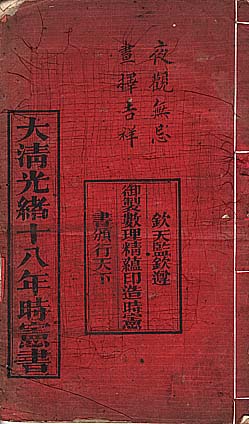 夜觀無忌
晝擇吉祥
欽天監欽遵
御製數理精蘊印造時憲
書頒行天下
大清光緒十八年時憲書